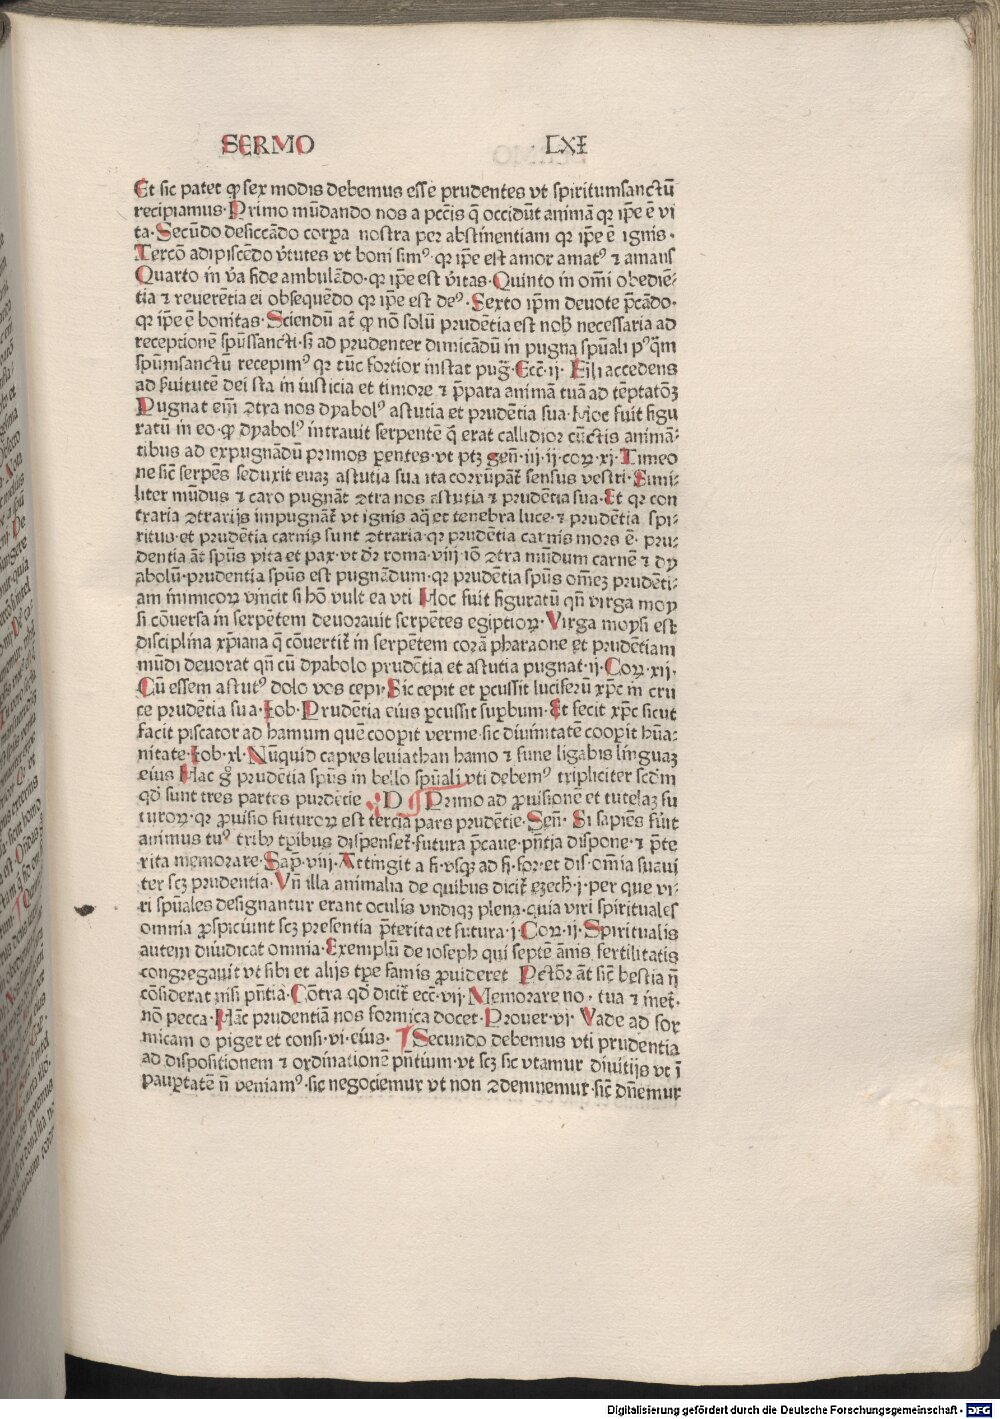 SERMO LXI
Et sic patet ꝙ sex modis debemus esse prudentes vt spiritumsanctū
recipiamus· Primo mūdando nos a pctīs q̄ occidūt animā qr ip̄e ē vi
ta· Secūdo desiccādo corpa nostra per abstinentiam qr ip̄e ē ignis·
Tercō adipiscēdo v̄tutes vt boni simꝰ· qr ip̄e est amor amatꝰ ⁊ amans
Quarto in v̄a fide ambulādo· qr ip̄e est v̄itas· Quinto in om̄i obediē⸗
tia ⁊ reuerētia ei obsequēdo qr ip̄e est deꝰ· Sexto ip̄m deuote p̄cādo·
qr ip̄e ē bonitas· Sciendū at̄ ꝙ nō solū prudētia est nob̄ necessaria ad
receptionē spūssancti· sꝫ ad prudenter dimicādū in pugna spūali pꝰq̄m
spūmsanctū recepimꝰ qr tūc fortior instat pug̃· Ecc̄· ij· Fili accedens
ad s̄uitutē dei sta in iusticia et timore ⁊ p̄para animā tuā ad tēptatōꝫ
Pugnat em̄ ↄtra nos dyabolꝰ astutia et prudētia sua· Hoc fuit figu
ratū in eo· ꝙ dyabolꝰ intrauit serpentē q̄ erat callidior cūctis animā⸗
tibus ad expugnādū primos parentes· vt ptꝫ gen̄· iij· ij· coꝝ· xj· Timeo
ne sic̄ serpēs seduxit euaꝫ astutia sua ita corrūpāt sensus vestri· Simi⸗
liter mūdus ⁊ caro pugnāt ↄtra nos astutia ⁊ prudētia sua· Et qr con
traria ↄtrarijs impugnāt̄ vt ignis aq̄ et tenebra luce· ⁊ prudētia spi⸗
ritus· et prudētia carnis sunt ↄtraria· qr prudētia carnis mors ē· pru⸗
dentia āt spūs vita et pax· vt dr̄ roma· viij iō ↄtra mūdum carnē ⁊ dy
abolū· prudentia spūs est pugnādum· qr prudētia spūs om̄eꝫ prudēti⸗
am inimicoꝝ vincit si hō vult ea vti Hoc fuit figuratū qn̄ virga moy
si cōuersa in serpētem deuorauit serpētes egiptioꝝ· Virga moysi est
disciplina xp̄iana q̄ cōuertit̄ in serpētem corā pharaone et prudētiam
mūdi deuorat qn̄ cū dyabolo prudētia et astutia pugnat· ij· Coꝝ· xij·
Cū essem astutꝰ dolo vos cepi· Sic cepit et ꝑcussit luciferū xp̄c in cru
ce prudētia sua· Iob· Prudētia eius ꝑcussit suꝑbum· Et fecit xp̄c sicut
facit piscator ad hamum quē cooꝑit verme· sic diuinitatē cooꝑit hūa⸗
nitate· Iob· xl· Nūquid capies leuiathan hamo ⁊ fune ligabis linguaꝫ
eius Hac g̊ prudētia spūs in bello spūali vti debemꝰ tripliciter scdm
qd̄ sunt tres partes purdētie · D Primo ad ꝓuisionē et tutelaꝫ fu
turoꝝ· qr ꝓuisio futuroꝝ est tercia pars prudētie· Sen̄· Si sapiēs fūit
animus tuꝰ tribꝰ tꝑibus dispenset̄· futura p̄caue· pn̄tia dispone· ⁊ p̄te
rita memorare· Sap̄· viij· Attingit a fi· vsqꝫ ad fi· for· et dis· om̄ia suaui
ter scꝫ prudentia· Vn̄ illa animalia de quibus dicit̄ ezech̄· j· per que vi⸗
ri spūales designantur erant oculis vndiqꝫ plena· quia viri spirituales
omnia ꝓspiciūnt scꝫ presentia p̄terita et futura· j· Coꝝ· ij· Spiritualis
autem diiudicat omnia· Exemplū de ioseph qui septē ānis fertilitatis
congregauit vt sibi et alijs tꝑe famis ꝓuideret Pctōr āt sic̄ bestia n̄
cōsiderat nisi pn̄tia· Cōtra qd̄ dicit̄ ecc̄· vij· Memorare no· tua ⁊ inet̄·
nō pecca· Hāc prudentiā nos formica docet· Prouer· vi· Vade ad for
micam o piger et consi· vi· eius· Secundo debemus vti prudentia
ad dispositionem ⁊ ordinationē pn̄tium· vt scꝫ sic vtamur diuitijs vt ī
pauꝑtatē n̄ veniamꝰ· sic negociemur vt non ↄdemnemur· sic̄ dn̄emur
Digitalisierung gefördert durch die Deutsche Forschungsgemeinschaft - DFG